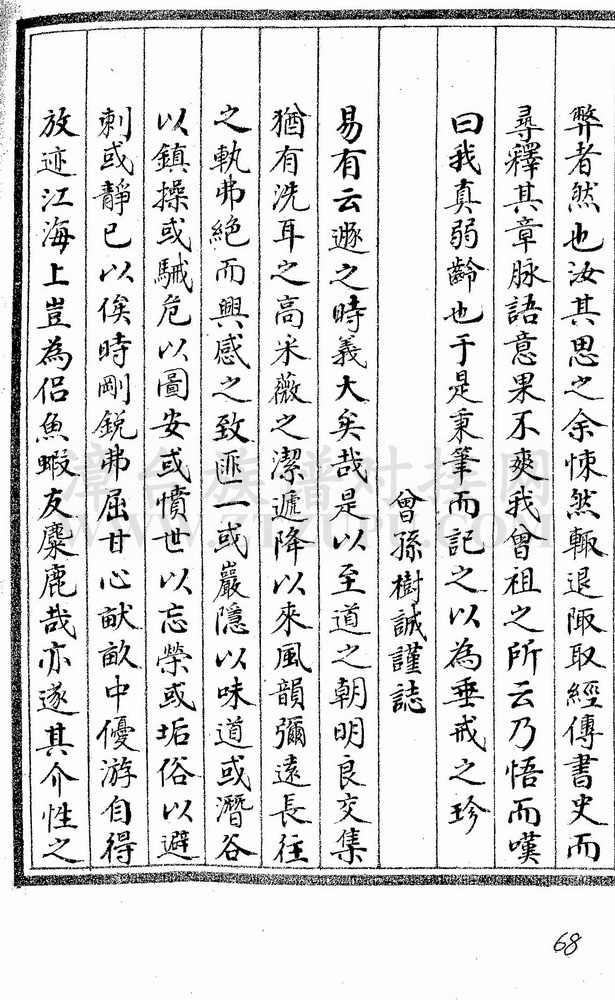 弊者然也汝其思之余悚然輒退陬取經傳書史而
尋釋其章脉語意果不爽我曾祖之所云乃悟而嘆
曰我真弱齡也于是秉筆而記之以為垂戒之珍
曾孫樹誠謹誌
易有云遯之時義大矣哉是以至道之朝明良交集
猶有洗耳之高采薇之潔遞降以來風韻彌遠長往
之軌弗絕而興感之致匪一或巖隱以味道或潛谷
以鎮操或駴危以圖安或憤世以忘榮或垢俗以避
刺或靜已以俟時剛銳弗屈甘心畎畝中優游自得
放迹江海上豈為侶魚蝦友麋鹿哉亦遂其介性之
漳台族譜对接网
68